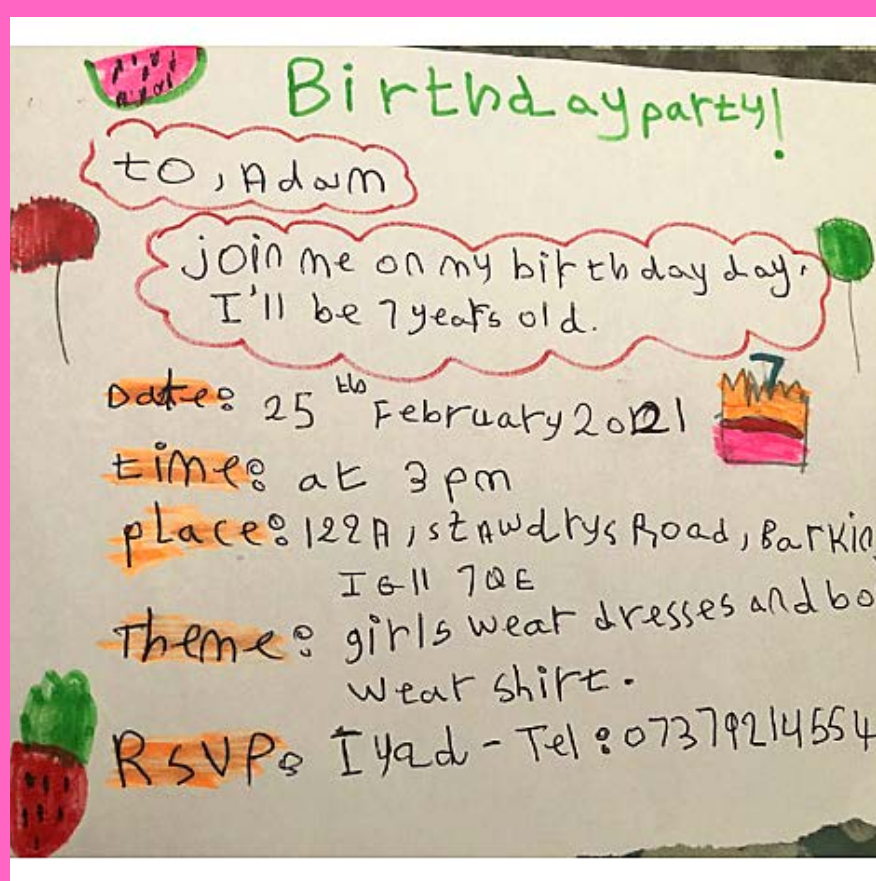 Birthday party!
to, Adam
join me on my birthday day.
I'll be 7 years old.
7
Date: 25th February 2021
time: at 3 pm
place: 122A, stAwdrys Road, Barking
IG11 7QE
Theme: girls wear dresses and bo
wear shirt.
RSVP: Iyad - Tel: 07379214554